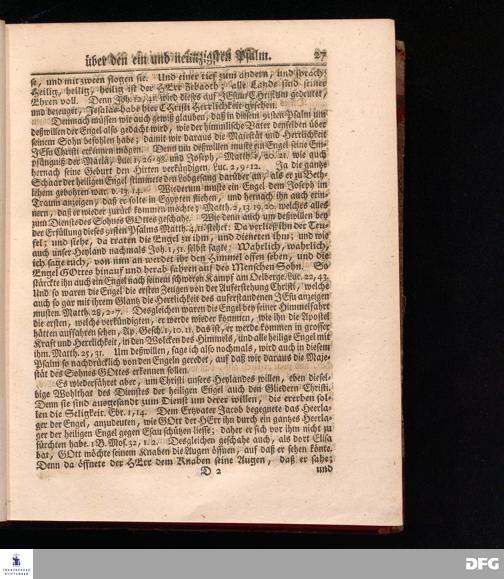 über den ein und neunzigsten Psalm. 27
se, und mit zween flogen sie. Und einer rief zum andern, und sprach:
Heilig, heilig, heilig ist der HErr Zebaoth; alle Lande sind seiner
Ehren voll. Denn Joh. 12, 41. wird dieses auf JEsum Christum gedeutet,
und bezeuget, Jesaias habe hier Christi Herrlichkeit gesehen.
Demnach müssen wir auch gewiß glauben, daß in diesem 91sten Psalm um
deßwillen der Engel also gedacht wird, wie der himmlische Vater denselben über
seinem Sohn befohlen habe; damit wir daraus die Majestät und Herrlichkeit
JEsu Christi erkennen mögen. Denn um deßwillen muste ein Engel seine Em-
pfängniß der Maria, Luc. 1, 26-38. und Joseph, Matth. 1, 20. 21. wie auch
hernach seine Geburt den Hirten verkündigen. Luc. 2, 9-12. Ja die gantze
Schaar der heiligen Engel stimmete den Lobgesang darüber an, als er zu Beth-
lehem gebohren war. v. 13. 14. Wiederum muste ein Engel dem Joseph im
Traum anzeigen, daß er solte in Egypten fliehen, und hernach ihn auch erin-
nern, daß er wieder zurück kommen möchte; Matth. 2, 13. 19. 20. welches alles
zum Dienste des Sohns GOttes geschahe. Wie denn auch um deßwillen bey
der Erfüllung dieses 91sten Psalms Matth. 4, 11. stehet: Da verließ ihn der Teu-
fel; und siehe, da traten die Engel zu ihm, und dieneten ihm; und wie
auch unser Heyland nochmals Joh. 1, 51. selbst sagte: Wahrlich, wahrlich,
ich sage euch, von nun an werdet ihr den Himmel offen sehen, und die
Engel GOttes hinauf und herab fahren auf des Menschen Sohn. So
stärckte ihn auch ein Engel nach seinem schweren Kampf am Oelberge. Luc. 22, 43.
Und so waren die Engel die ersten Zeugen von der Auferstehung Christi, welche
auch so gar mit ihrem Glantz die Herrlichkeit des auferstandenen JEsu anzeigen
musten. Matth. 28, 2-7. Desgleichen waren die Engel bey seiner Himmelfahrt
die ersten, welche verkündigten, er werde wieder kommen, wie ihn die Apostel
hätten auffahren sehen, Ap. Gesch. 1, 10. 11. das ist, er werde kommen in grosser
Kraft und Herrlichkeit, in den Wolcken des Himmels, und alle heilige Engel mit
ihm. Matth. 25, 31. Um deßwillen, sage ich also nochmals, wird auch in diesem
Psalm so nachdrücklich von den Engeln geredet, auf daß wir daraus die Maje-
stät des Sohns GOttes erkennen sollen.
Es wiederfähret aber, um Christi unsers Heylandes willen, eben diesel-
bige Wohlthat des Diensts der heiligen Engel auch den Gliedern Christi.
Denn sie sind ausgesandt zum Dienst um derer willen, die ererben sol-
len die Seligkeit. Ebr. 1, 14. Dem Ertzvater Jacob begegnete das Heerla-
ger der Engel, anzudeuten, wie GOtt der HErr ihn durch ein gantzes Heerla-
ger der heiligen Engel gegen Esau schützen liesse; daher er sich vor ihm nicht zu
fürchten habe. 1 B. Mos. 32, 1. 2. Desgleichen geschahe auch, als dort Elisa
bat, GOtt möchte seinem Knaben die Augen öffnen, auf daß er sehen könte.
Denn da öffnete der HErr dem Knaben seine Augen, daß er sahe;
D 2 und
FRANCKESCHE STIFTUNGEN
DFG